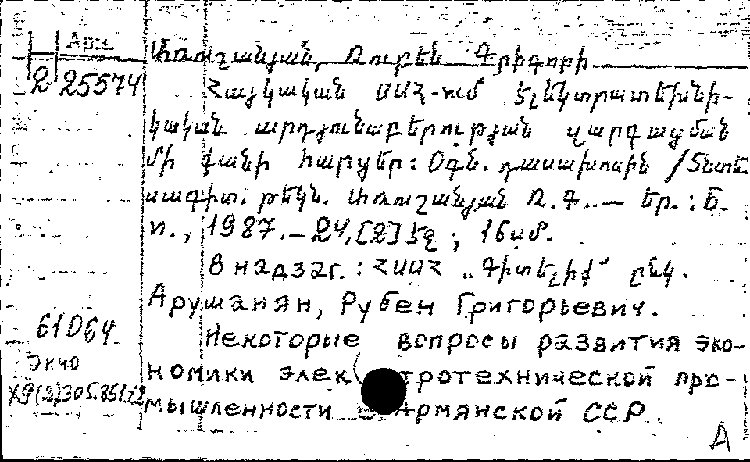 Арм.
2 25574
Առուշանյան, Ռուբեն Գրիգորի
Հայկական ՍՍՀ-ում էլեկտրատեխնի-
կական արդյունաբերության զարգացման
մի քանի հարցեր: Օգն. դասախոսին /Տնտե
սագիտ. թեկն. Առուշանյան Ռ.Գ. — Եր.: Ե.
ո., 1987. — 24, [2] էջ ; 16 սմ.
В надзаг.: ՀՍՍՀ „Գիտելիք" ընկ.
Арушанян, Рубен Григорьевич.
61064 Некоторые вопросы развития эко-
номики элек тротехнической про-
мышленности в Армянской ССР
А